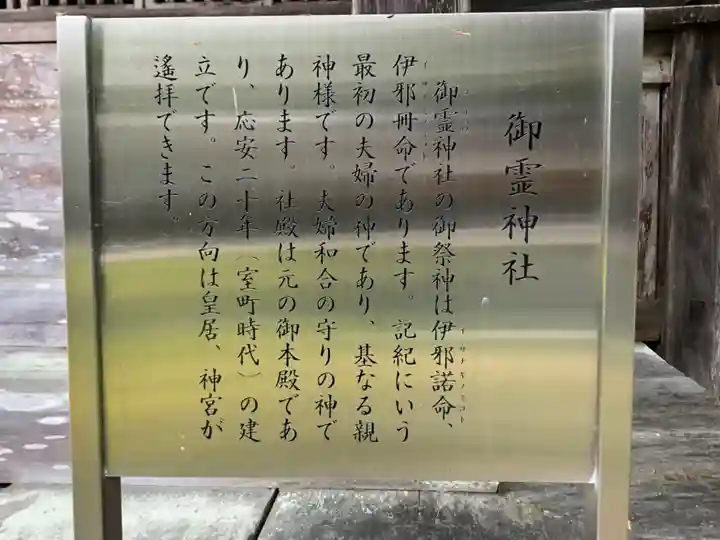 御霊神社
御霊神社の御祭神は伊邪諾命、
伊邪冊命であります。記紀にいう
最初の夫婦の神であり、基なる親
神様です。夫婦和合の守りの神で
あります。社殿は元の御本殿であ
り、応安二十年（室町時代）の建
立です。この方向は皇居、神宮が
遙拝できます。